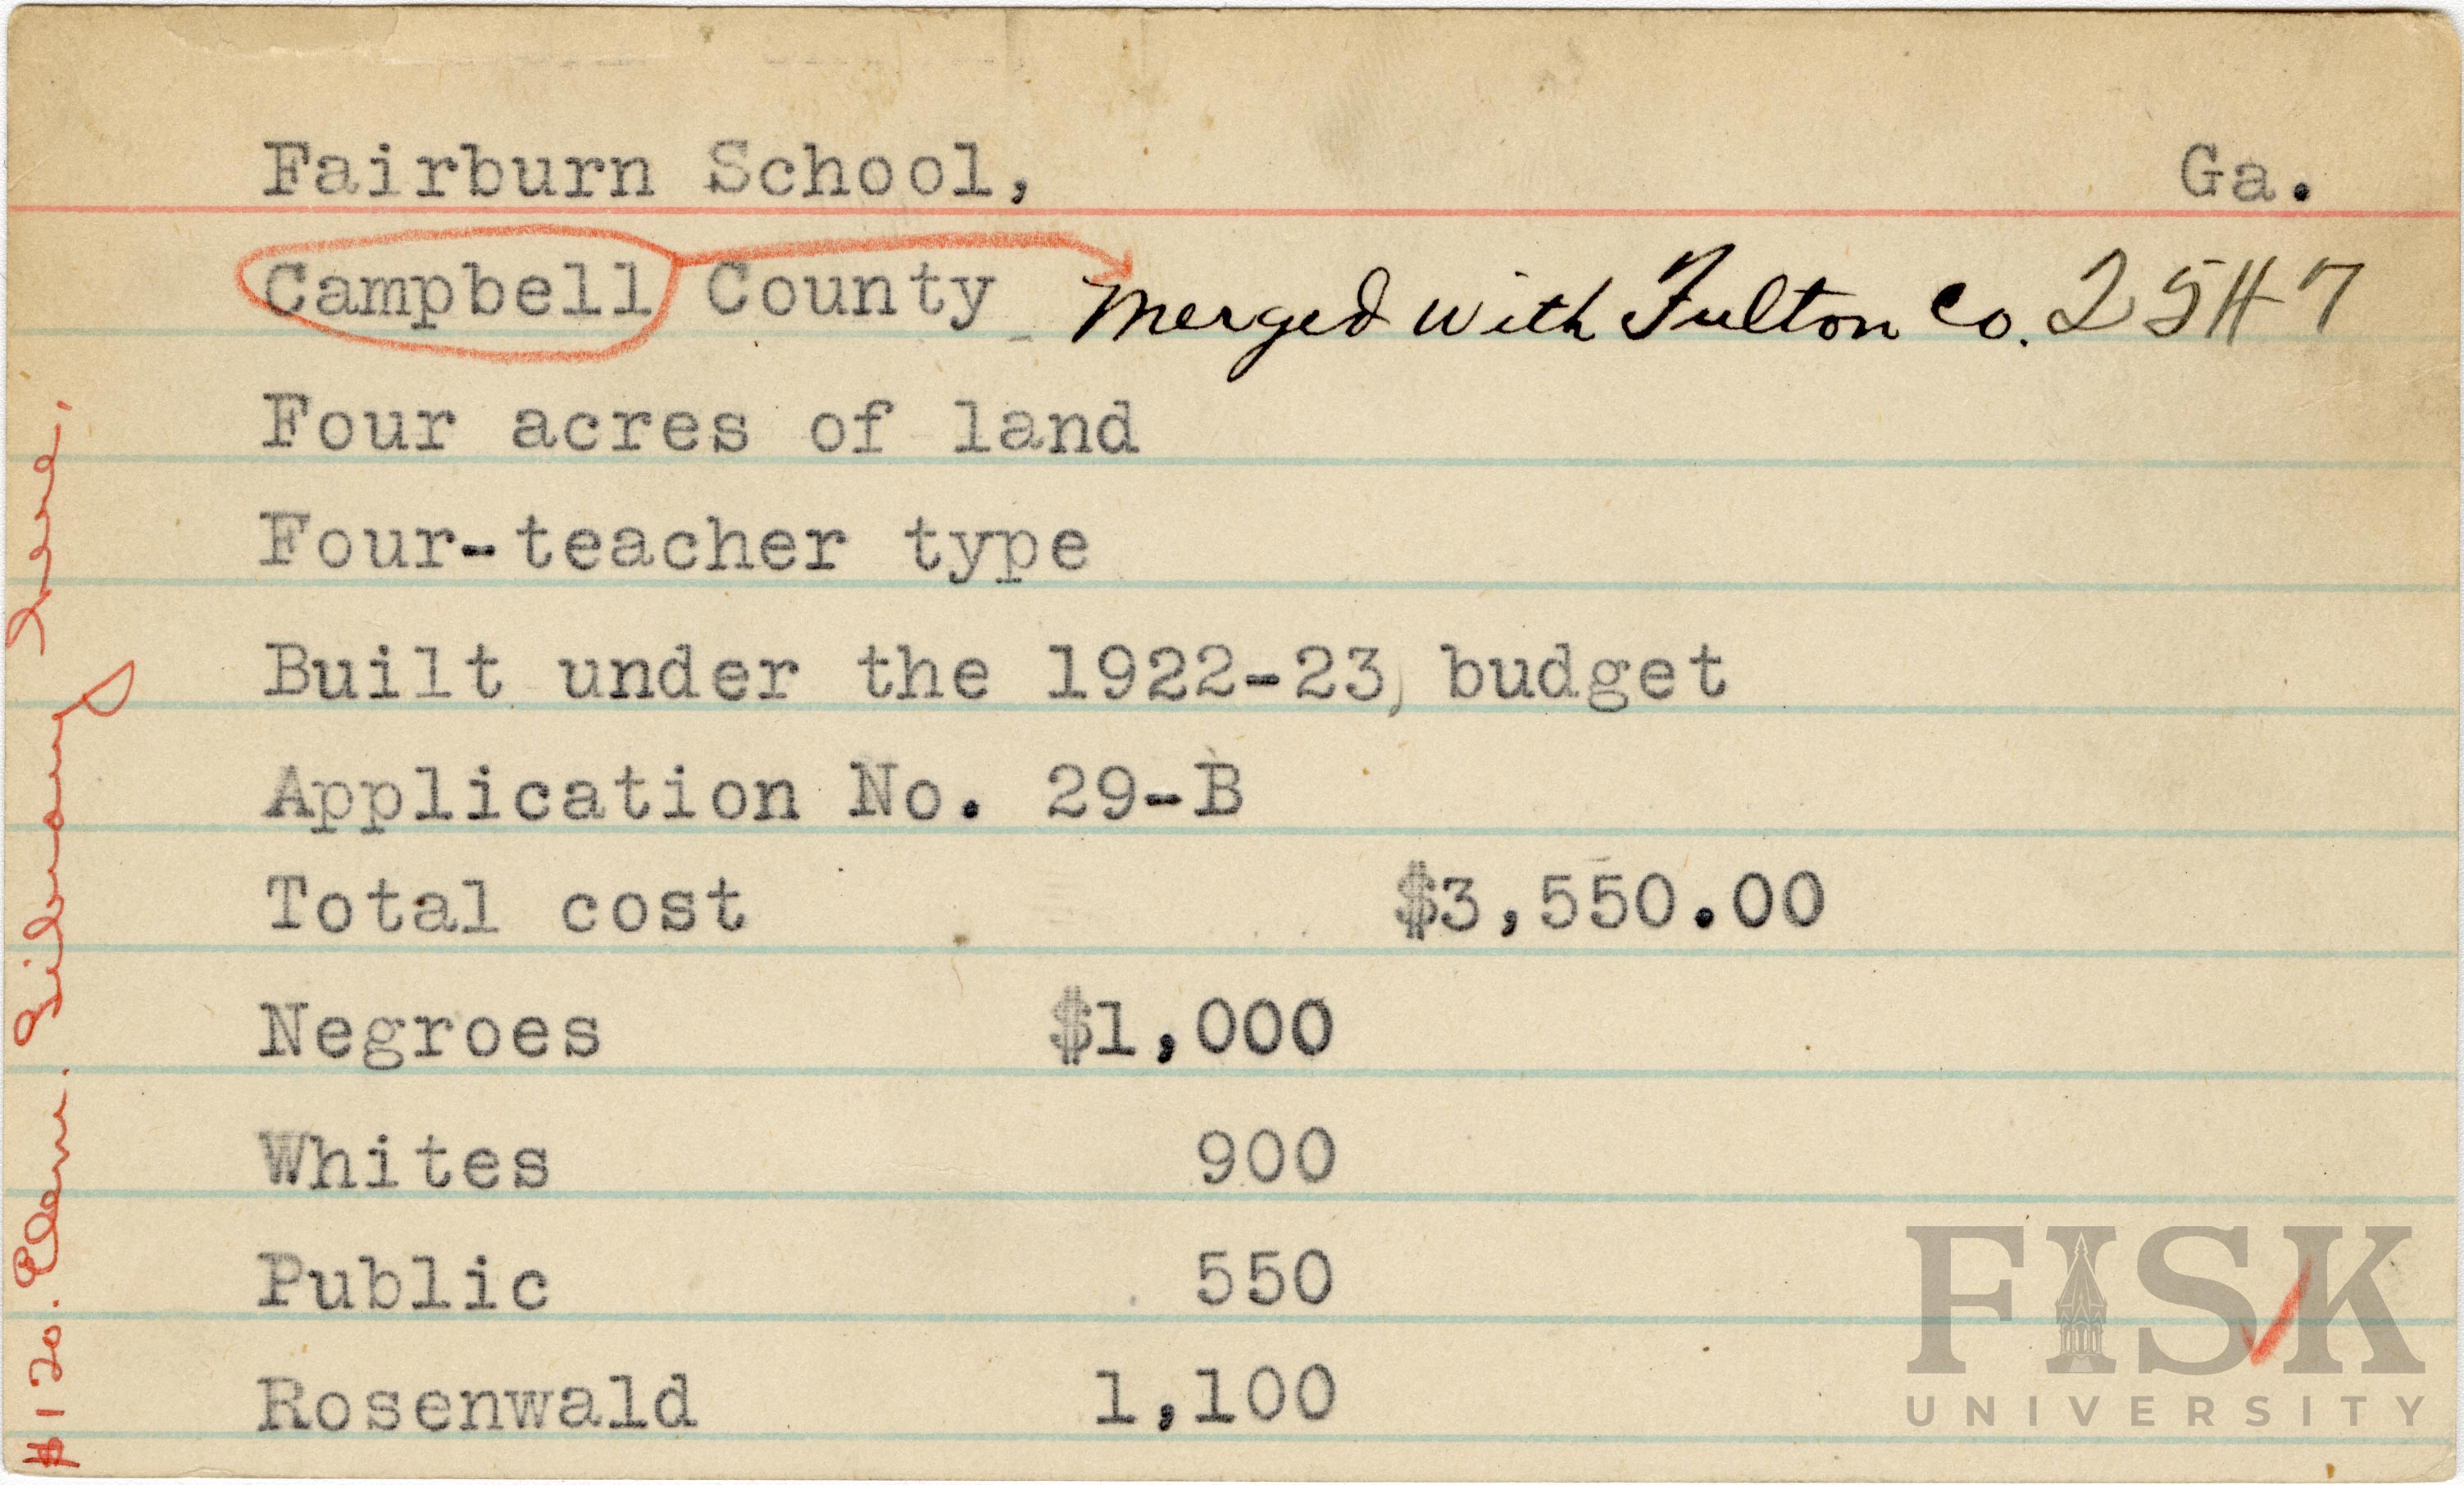 Fairburn School, Ga.
Campbell County Merged with Fulton Co. 2547
Four acres of land
Four-teacher type
Built under the 1922-23, budget
Application No. 29-B
Total cost $3,550.00
Negroes $1,000
Whites 900
Public 550
Rosenwald 1,100
$120. Elem. Library
FISK
UNIVERSITY